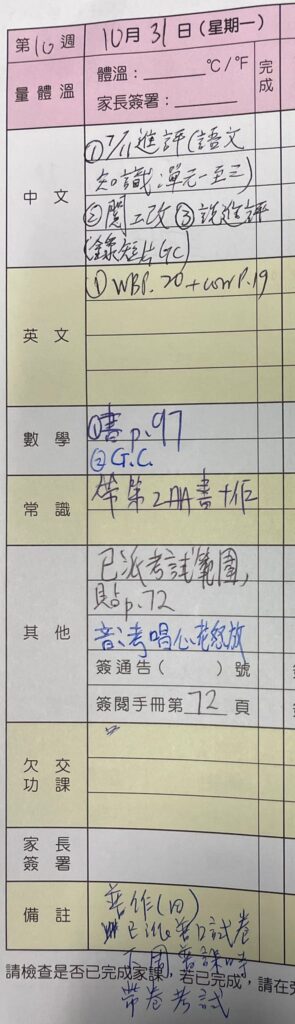 第10週 10月31日(星期一)
量體溫 體溫:______℃/℉ 完成
家長簽署:______
中文 ①7/11進評(語文
知識:單元一至三)
②閱工改③說進評
(錄短片GC)
英文 ①WBP.20+
P.19
數學 ①書p.97
②G.C.
常識 帶第2AA書+作
其他 已派考試範圍,
貼p.72
音:考唱心花怒放
簽通告( )號
簽閱手冊第72頁
欠交功課
家長簽署
備註 普作(田)
已派普口試卷
下周,普課時
帶卷考試
請檢查是否已完成家課,若已完成,請在